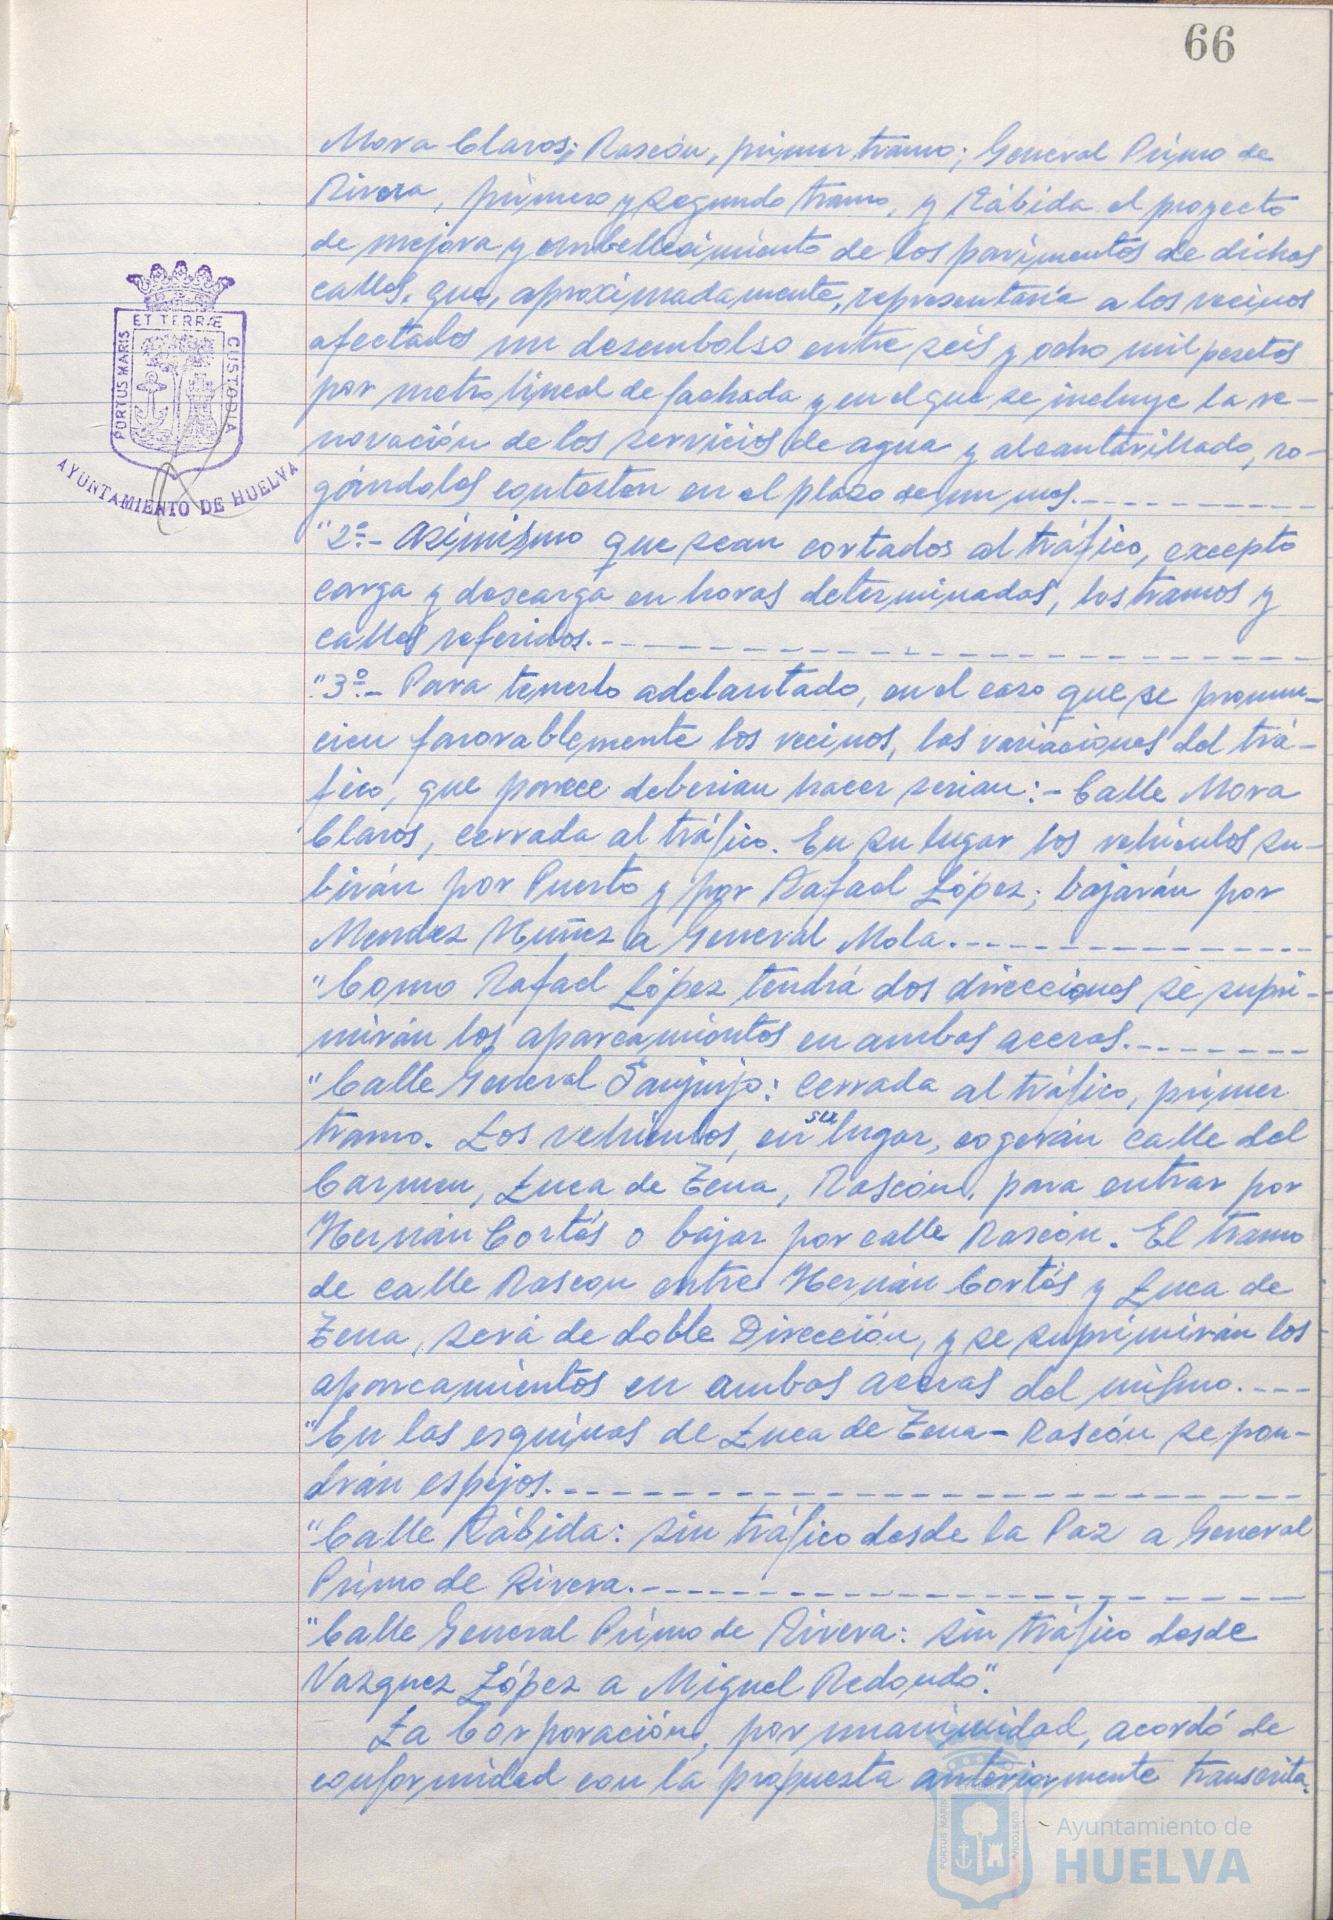 66
Mora Claros; Rascón, primer tramo; General Primo de
Rivera, primero y segundo tramo, y Rábida el proyecto
de mejora y embellecimiento de los pavimentos de dichas
calles, que, aproximadamente, representaría a los vecinos
afectados un desembolso entre seis y ocho mil pesetas
por metro lineal de fachada y en el que se incluye la re-
novación de los servicios de agua y alcantarillado, ro-
gándoles contesten en el plazo de un mes.
"2º.- Asimismo que sean cortados al tráfico, excepto
carga y descarga en horas determinadas, los tramos y
calles referidos.
"3º.- Para tenerlo adelantado, en el caso que se pronun-
cien favorablemente los vecinos, las variaciones del trá-
fico, que parece deberian hacer serian:- Calle Mora
Claros, cerrada al tráfico. En su lugar los vehículos su-
birán por Puerto y por Rafael López; bajarán por
Mendez Nuñez a General Mola.
"Como Rafael López tendrá dos direcciones se supri-
mirán los aparcamientos en ambas aceras.
"Calle General Sanjurjo: Cerrada al tráfico, primer
tramo. Los vehículos, en su lugar, cogerán calle del
Carmen, Luca de Tena, Rascón, para entrar por
Hernán Cortés o bajar por calle Rascón. El tramo
de calle Rascon entre Hernán Cortés y Luca de
Tena, será de doble Dirección, y se suprimirán los
aparcamientos en ambas aceras del mismo.
"En las esquinas de Luca de Tena - Rascón se pon-
drán espejos.
"Calle Rábida: sin tráfico desde la Paz a General
Primo de Rivera.
"Calle General Primo de Rivera: sin tráfico desde
Vazquez López a Miguel Redondo".
La Corporación, por unanimidad, acordó de
conformidad con la propuesta anteriormente transcrita.
PORTUS MARIS ET TERRÆ CUSTODIA
AYUNTAMIENTO DE HUELVA
PORTUS MARIS CUSTODIA
Ayuntamiento de
HUELVA